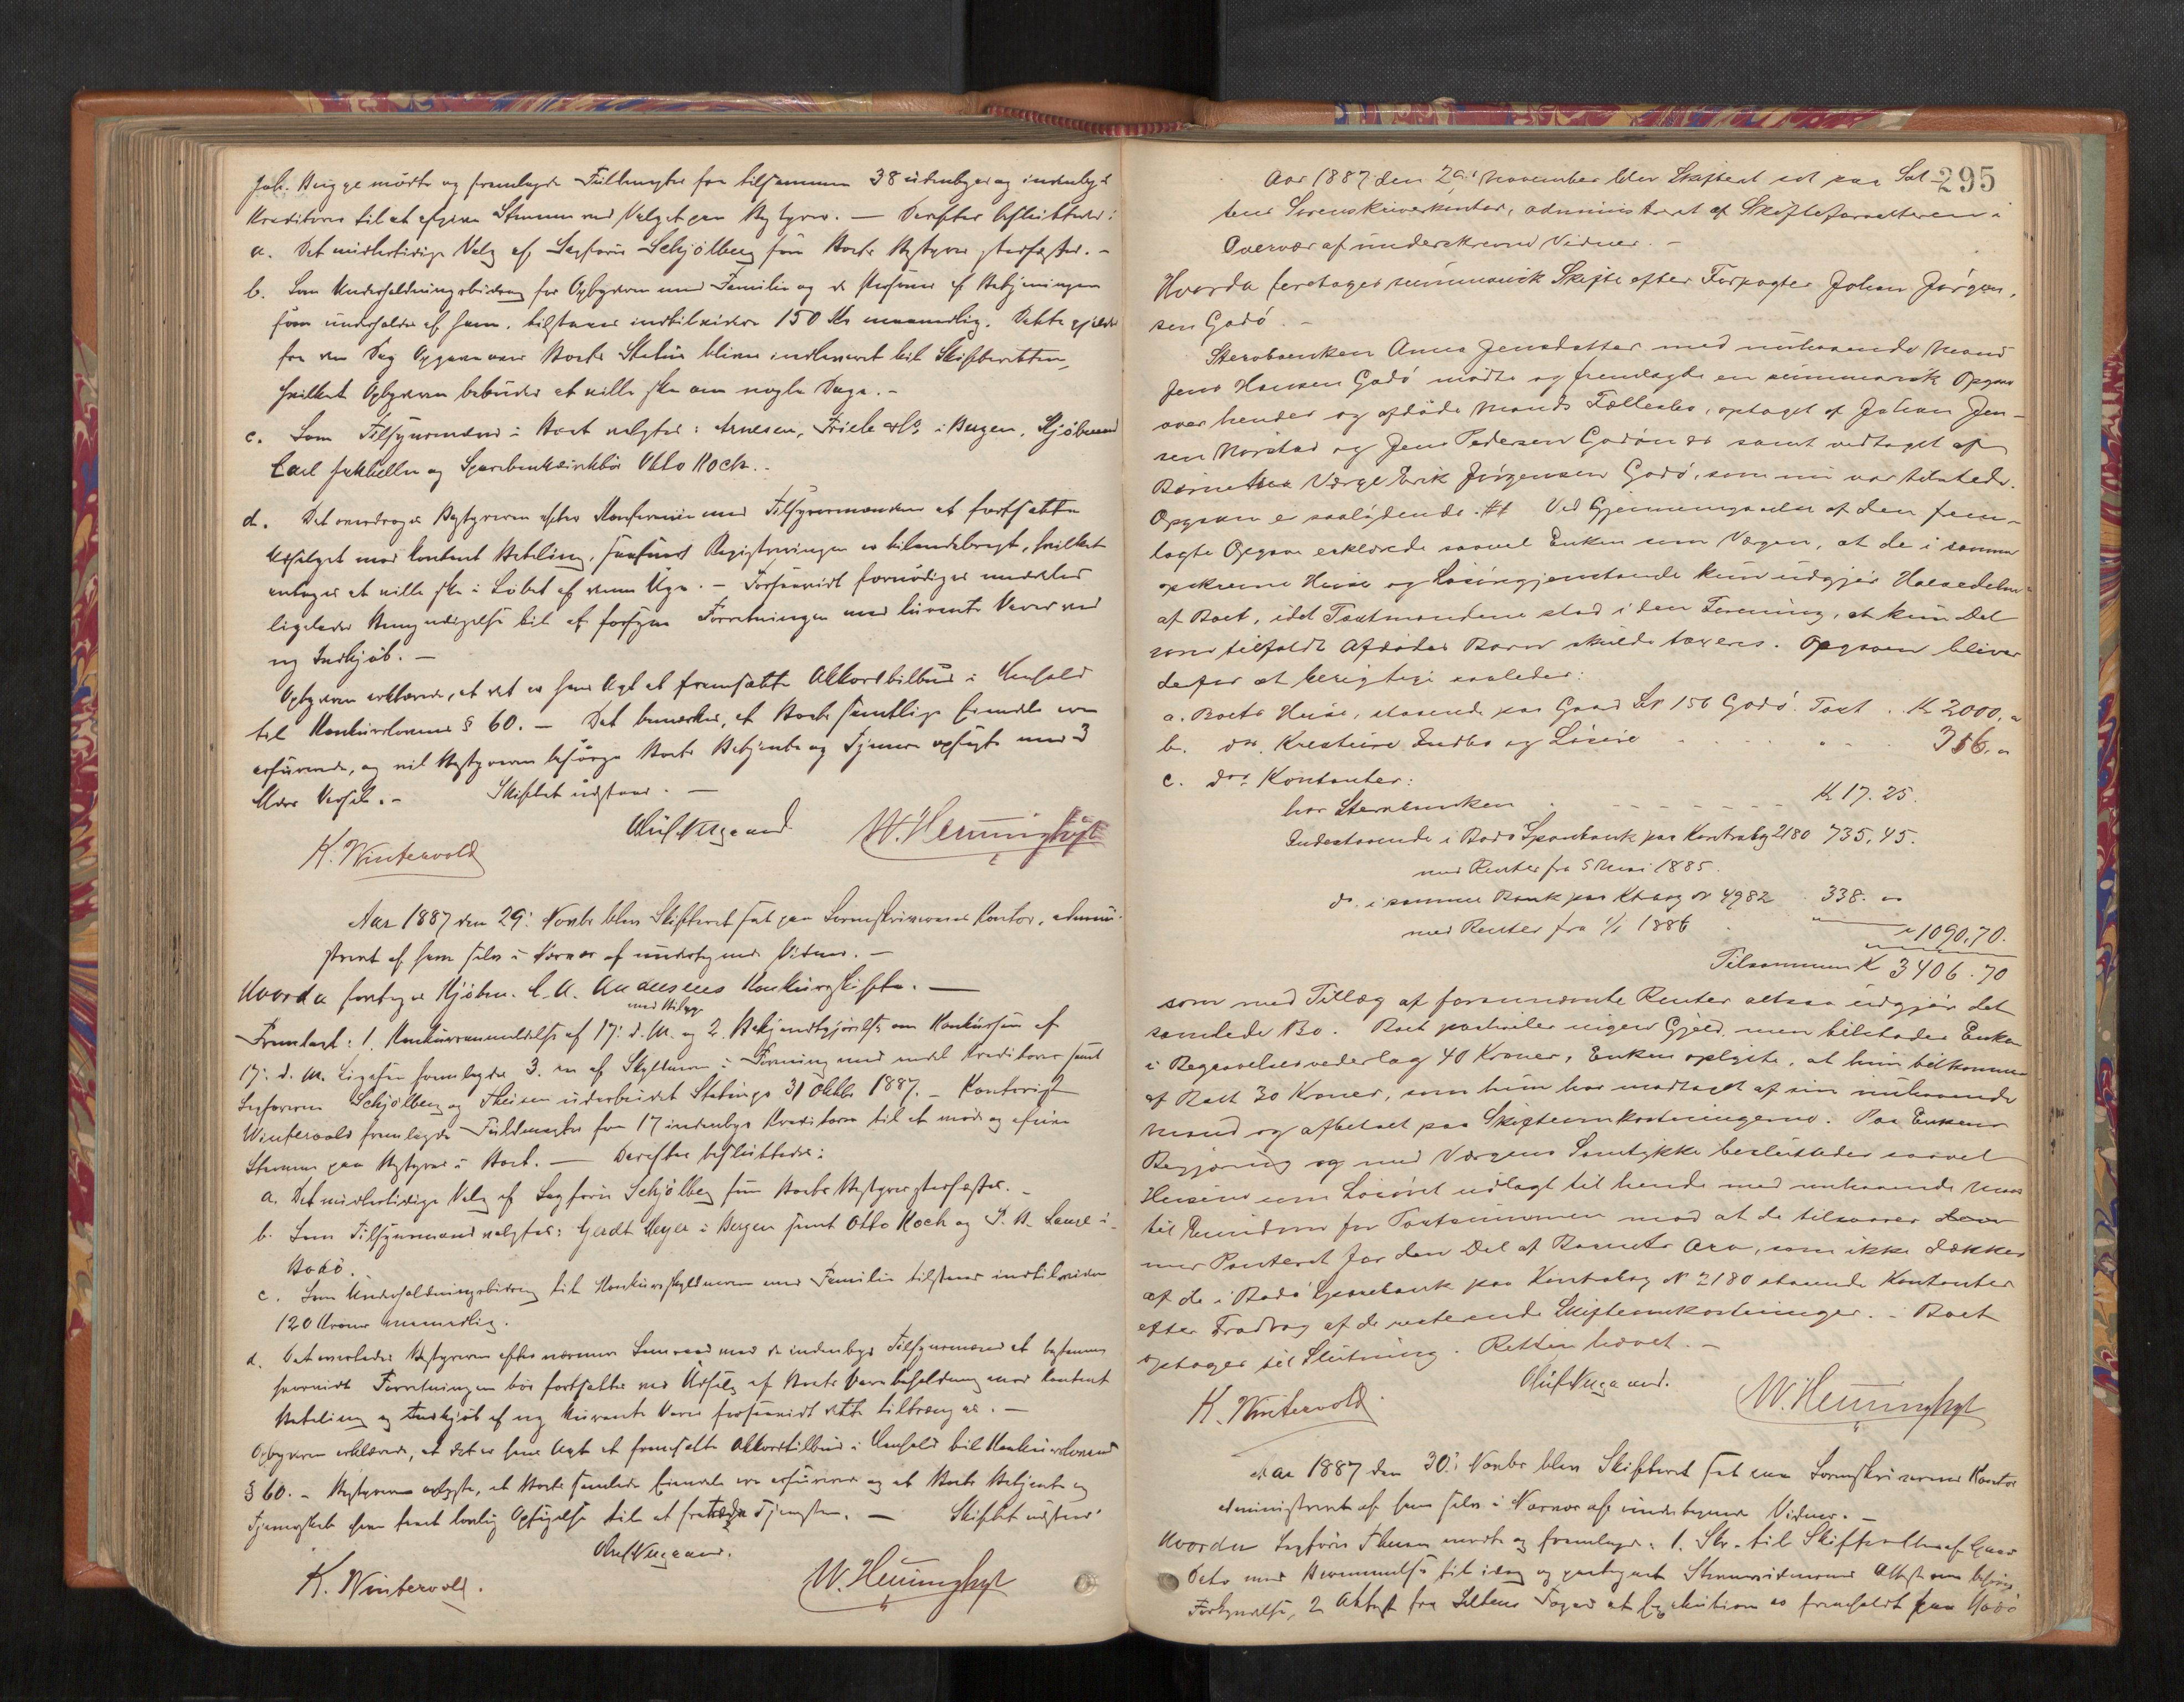 Joh. Bugge mødte og fremlagde Fuldmagter fra tilsammen 38 udenbyes og indenbyes
Kreditorer til at afgive Stemme ved Valget paa Bestyrer. — Derefter besluttedes:
a. Det midlertidige Valg af Sagfører Schjølberg som Boets Bestyrer stadfæstes. -
b. Som Underholdningsbidrag for Opbyderen med Familie og de Personer af Betjeningen
som underholdes af ham, tilstaaes indtilvidere 150 Kr maanedlig. Dette gjælder
fra den Dag Opgave over Boets Status bliver indleveret til Skifteretten,
hvilket Opbyderen bebuder at ville ske om nogle Dage. -
c. Som Tilsynsmænd i Boet valgtes: Arnesen, Friele & Co i Bergen, Kjøbmand
Carl Jakhelln og Sparebankdirektør Otto Koch. -
d. Det overdrages Bestyreren efter Konference med Tilsynsmændene at fortsætte
Udsalget mod kontant Betaling, saasnart Registreringen er tilendebragt, hvilket
antages at ville ske i Løbet af denne Uge. - Forsaavidt fornødiges meddeles
ligeledes Bemyndigelse til at forsyne Forretningen med kurante Varer ved
ny Indkjøb. —
Opbyderen erklærede, at det er hans Agt at fremsætte Akkordtilbud i Henhold
til Konkurslovens § 60. — Det bemærkes, at Boets samtlige Eiendele ere
assurerede, og vil Bestyreren besørge Boets Betjente og Tjenere opsagte med 3
Mdrs Varsel. - Skiftet udstaar. —
K. Wintervold Oluf Nygaard W. Hemminghyt
Aar 1887 den 29. Novbr blev Skifteret sat paa Sorenskriverens Kontor, admini-
streret af ham selv i Nærvær af undertegnede Vidner. —
Hvorda foretoges Kjøbm. C. A. Andersens Konkursskifte. —
med Bilag
Fremlagt: 1. Konkursanmeldelse af 17. d. M. og 2. Bekjendtgjørelse om Konkursen af
17. d. M. Ligesaa fremlagdes 3. en af Skyldneren i Forening med endel Kreditorer samt
Sagførerne Schjølberg og Thesen udarbeidet Status pr 31 Oktbr 1887. - Kontorist
Wintervold fremlagde Fuldmagter fra 17 indenbys Kreditorer til at møde og afgive
Stemme paa Bestyrer i Boet. — Derefter besluttedes:
a. Det midlertidige Valg af Sagfører Schjølberg som Boets Bestyrer stadfæstes. -
b. Som Tilsynsmænd valgtes: Gerdt Meyer i Bergen samt Otto Koch og J. A. Lange i
Bodø.
c. Som Underholdningsbidrag til Konkursskyldneren med Familie tilstaaes indtilvidere
120 Kroner maanedlig.
d. Det overlades Bestyreren efter nærmere Samraad med de indenbys Tilsynsmænd at bestemme
hvorvidt Forretningen bør fortsættes ved Udsalg af Boets Varebeholdning mod kontant
Betaling og Indkjøb af ny kurante Varer forsaavidt dette tiltrænges. —
Opbyderen erklærede, at det er hans Agt at fremsætte Akkordtilbud i Henhold til Konkurslovens
§ 60. - Bestyreren oplyste, at Boets samlede Eiendele ere assurerede og at Boets Betjente og
Tjenerskab have faaet lovlig Opsigelse til at fratræde Tjenesten. — Skiftet udstaar.
K. Wintervold. Oluf Nygaard. W. Hemminghyt
295
Aar 1887 den 29de November blev Skifteret sat paa Sal-
tens Sorenskriverkontor, administreret af Skifteforvalteren i
Overvær af underskrevne Vidner. -
Hvorda foretoges summarisk Skifte efter Forpagter Johan Jørgen-
sen Godø. -
Stervboenken Anna Jensdatter med nuhavende Mand
Jens Hansen Godø mødte og fremlagde en summarisk Opgave
over hendes og afdøde Mands Fællesbo, optaget af Johan Jen-
sen Morstad og Jens Pedersen Godønes samt vedtaget af
Børnenes Værge Erik Jørgensen Godø, som nu var tilstede.
Opgaven er saalydende. ## Ved Gjennemgaaelse af den frem-
lagte Opgave erklærede saavel Enken som Værgen, at de i samme
opskrevne Huse og Løsøregjenstande kun udgjør Halvedelen
af Boet, idet Taxtmændene stod i den Formening, at kun Del
som tilfaldt Afdødes Barn skulde taxeres. Opgaven bliver
derfor at berigtige saaledes:
a. Boets Huse, staaende paa Gaard L№ 156 Godø. Taxt . Kr 2000, "
b. do. Kreature Indbo og Løsøre . . . " . . 316. "
c. do. Kontanter:
hos Stervboenken . - - - - - - - Kr 17. 25.
Indestaaende i Bodø Sparebank paa Kontrabog 2180 735,45.
med Renter fra 5 Mai 1885.
do. i samme Bank paa Ktrabog № 4982 . 338. "
med Renter fra 1/1 1886 . " 1090,70.
Tilsammen K 3406.70
som med Tillæg af forannævnte Renter altsaa udgjør det
samlede Bo. Boet paahviler ingen Gjeld men tilstaaes Enken
i Begravelsesvederlag 40 Kroner, Enken oplyste, at hun tilkommer
af Boet 30 Kroner, som hun har modtaget af sin nuhavende
Mand og afbetalt paa Skifteomkostningerne. Paa Enkens
Begjæring og med Værgens Samtykke besluttedes saavel
Husene som Løsøret udlagt til hende med nuhavende Mand
til Eiendom for Taxtsummen mod at de tilsvarer
mer Panteret for den Del af Barnets Arv, som ikke dækkes
af de i Bodø Sparebank paa Kontrabog № 2180 staaende Kontanter
efter Fradrag af de resterende Skifteomkostninger. - Boet
optages til Slutning. Retten hævet. -
K. Wintervold. Oluf Nygaard. W. Hemminghyt
Aar 1887 den 30. Novbr blev Skifteret sat paa Sorenskriverens Kontor
administreret af ham selv i Nærvær af undertegnede Vidner. -
Hvorda Sagfører Thesen mødte og fremlagde: 1. Skr. til Skifteretten af
Dato med Berammelse til idag og paategnet Stevnevidnernes Attest om lovlig
Forkyndelse, 2. Attest fra Saltens Foged at Exekution er fremholdt paa Bodø